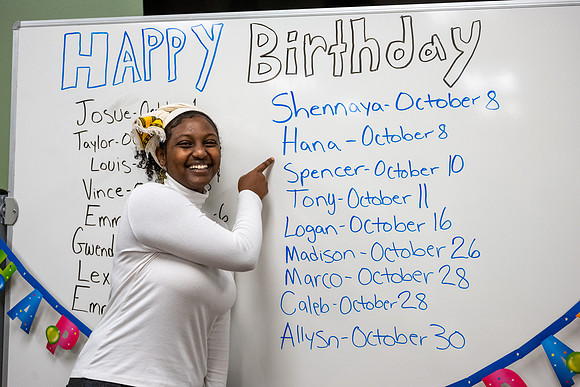 HAPPY Birthday
Josue-
Taylor-
Louis
Vince-
Emm
Gwend
Lex
Emm
6
Shennaya-October 8
Hana-October 8
Spencer-October 10
Tony-October 11
Logan-October 16
Madison-October 26
Marco-October 28
Caleb-October 28
Allysn-October 30